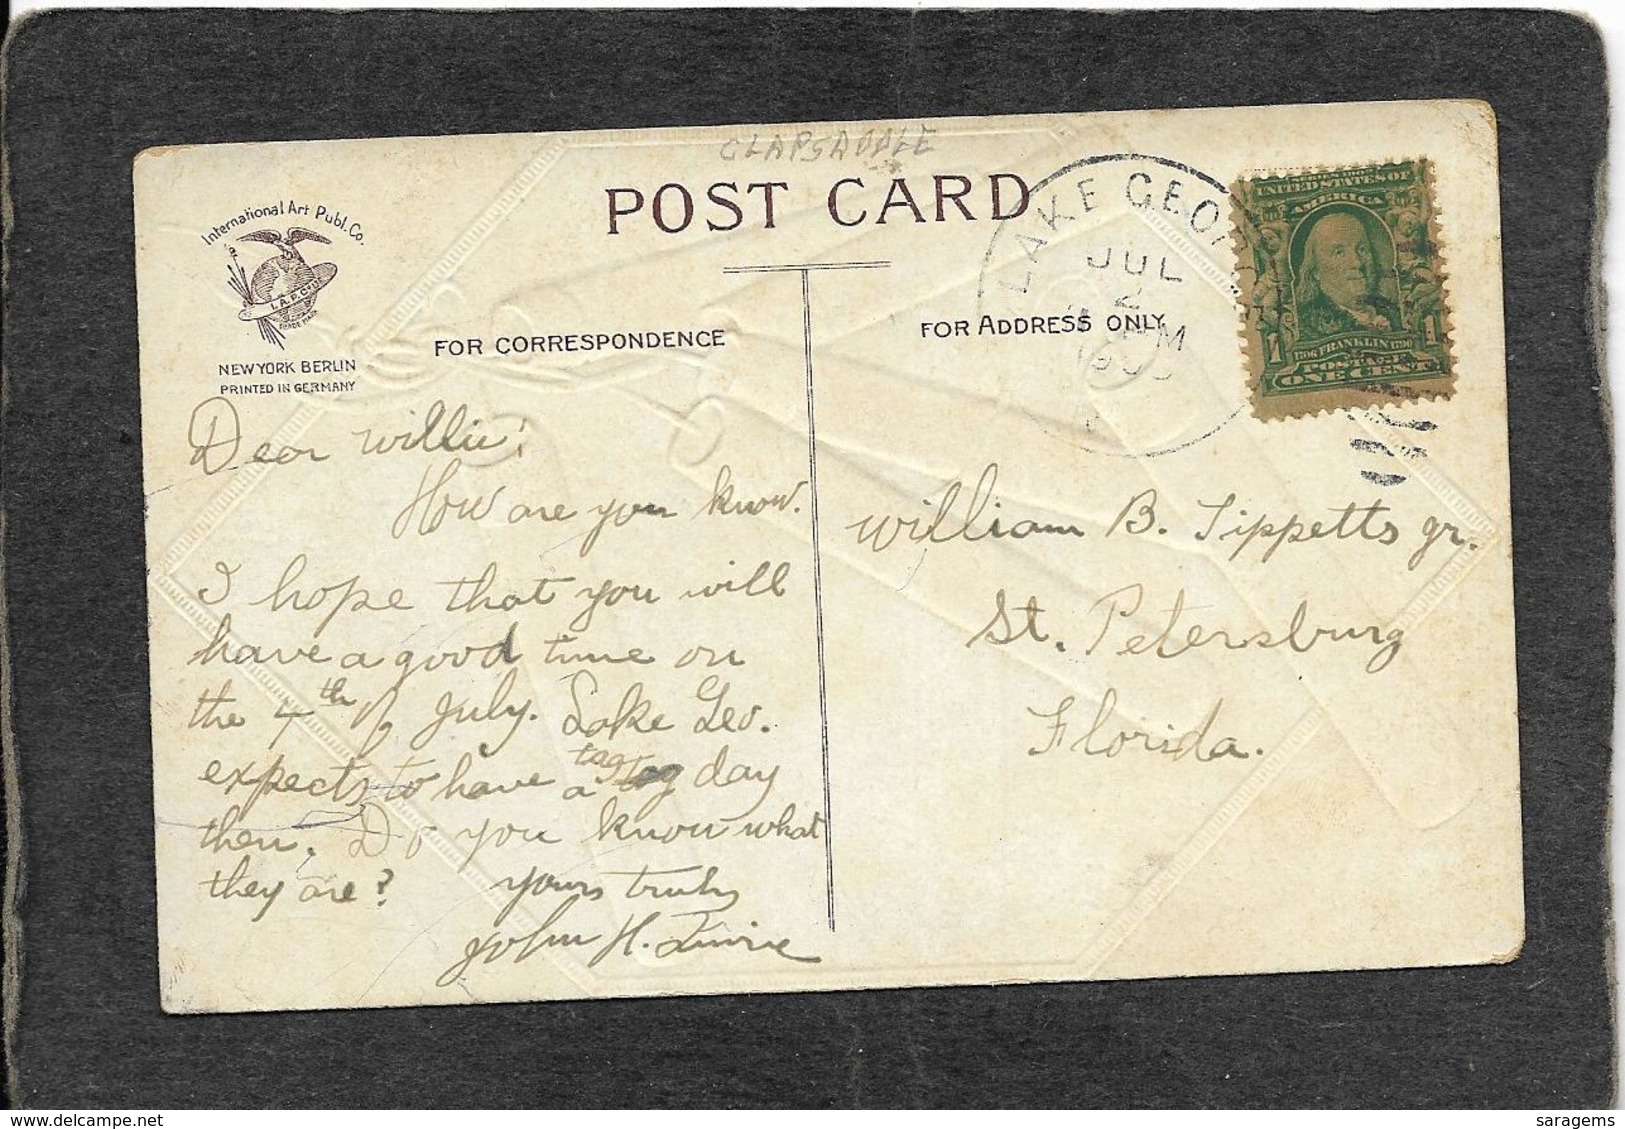 CLAPSADDLE
POST CARD
International Art Publ. Co.
I. A. P. Co.
TRADE MARK
NEW YORK BERLIN
PRINTED IN GERMANY
FOR CORRESPONDENCE
FOR ADDRESS ONLY
LAKE GEOR
JUL
2
PM
UNITED STATES OF
AMERICA
1706 FRANKLIN 1790
ONE CENT
Dear Willie:
How are you know.
I hope that you will
have a good time on
the 4th of July. Lake Geo.
expects to have a tag day
then. Do you know what
they are?
yours truly
John H.
William B. Tippetts jr.
St. Petersburg
Florida.
saragems